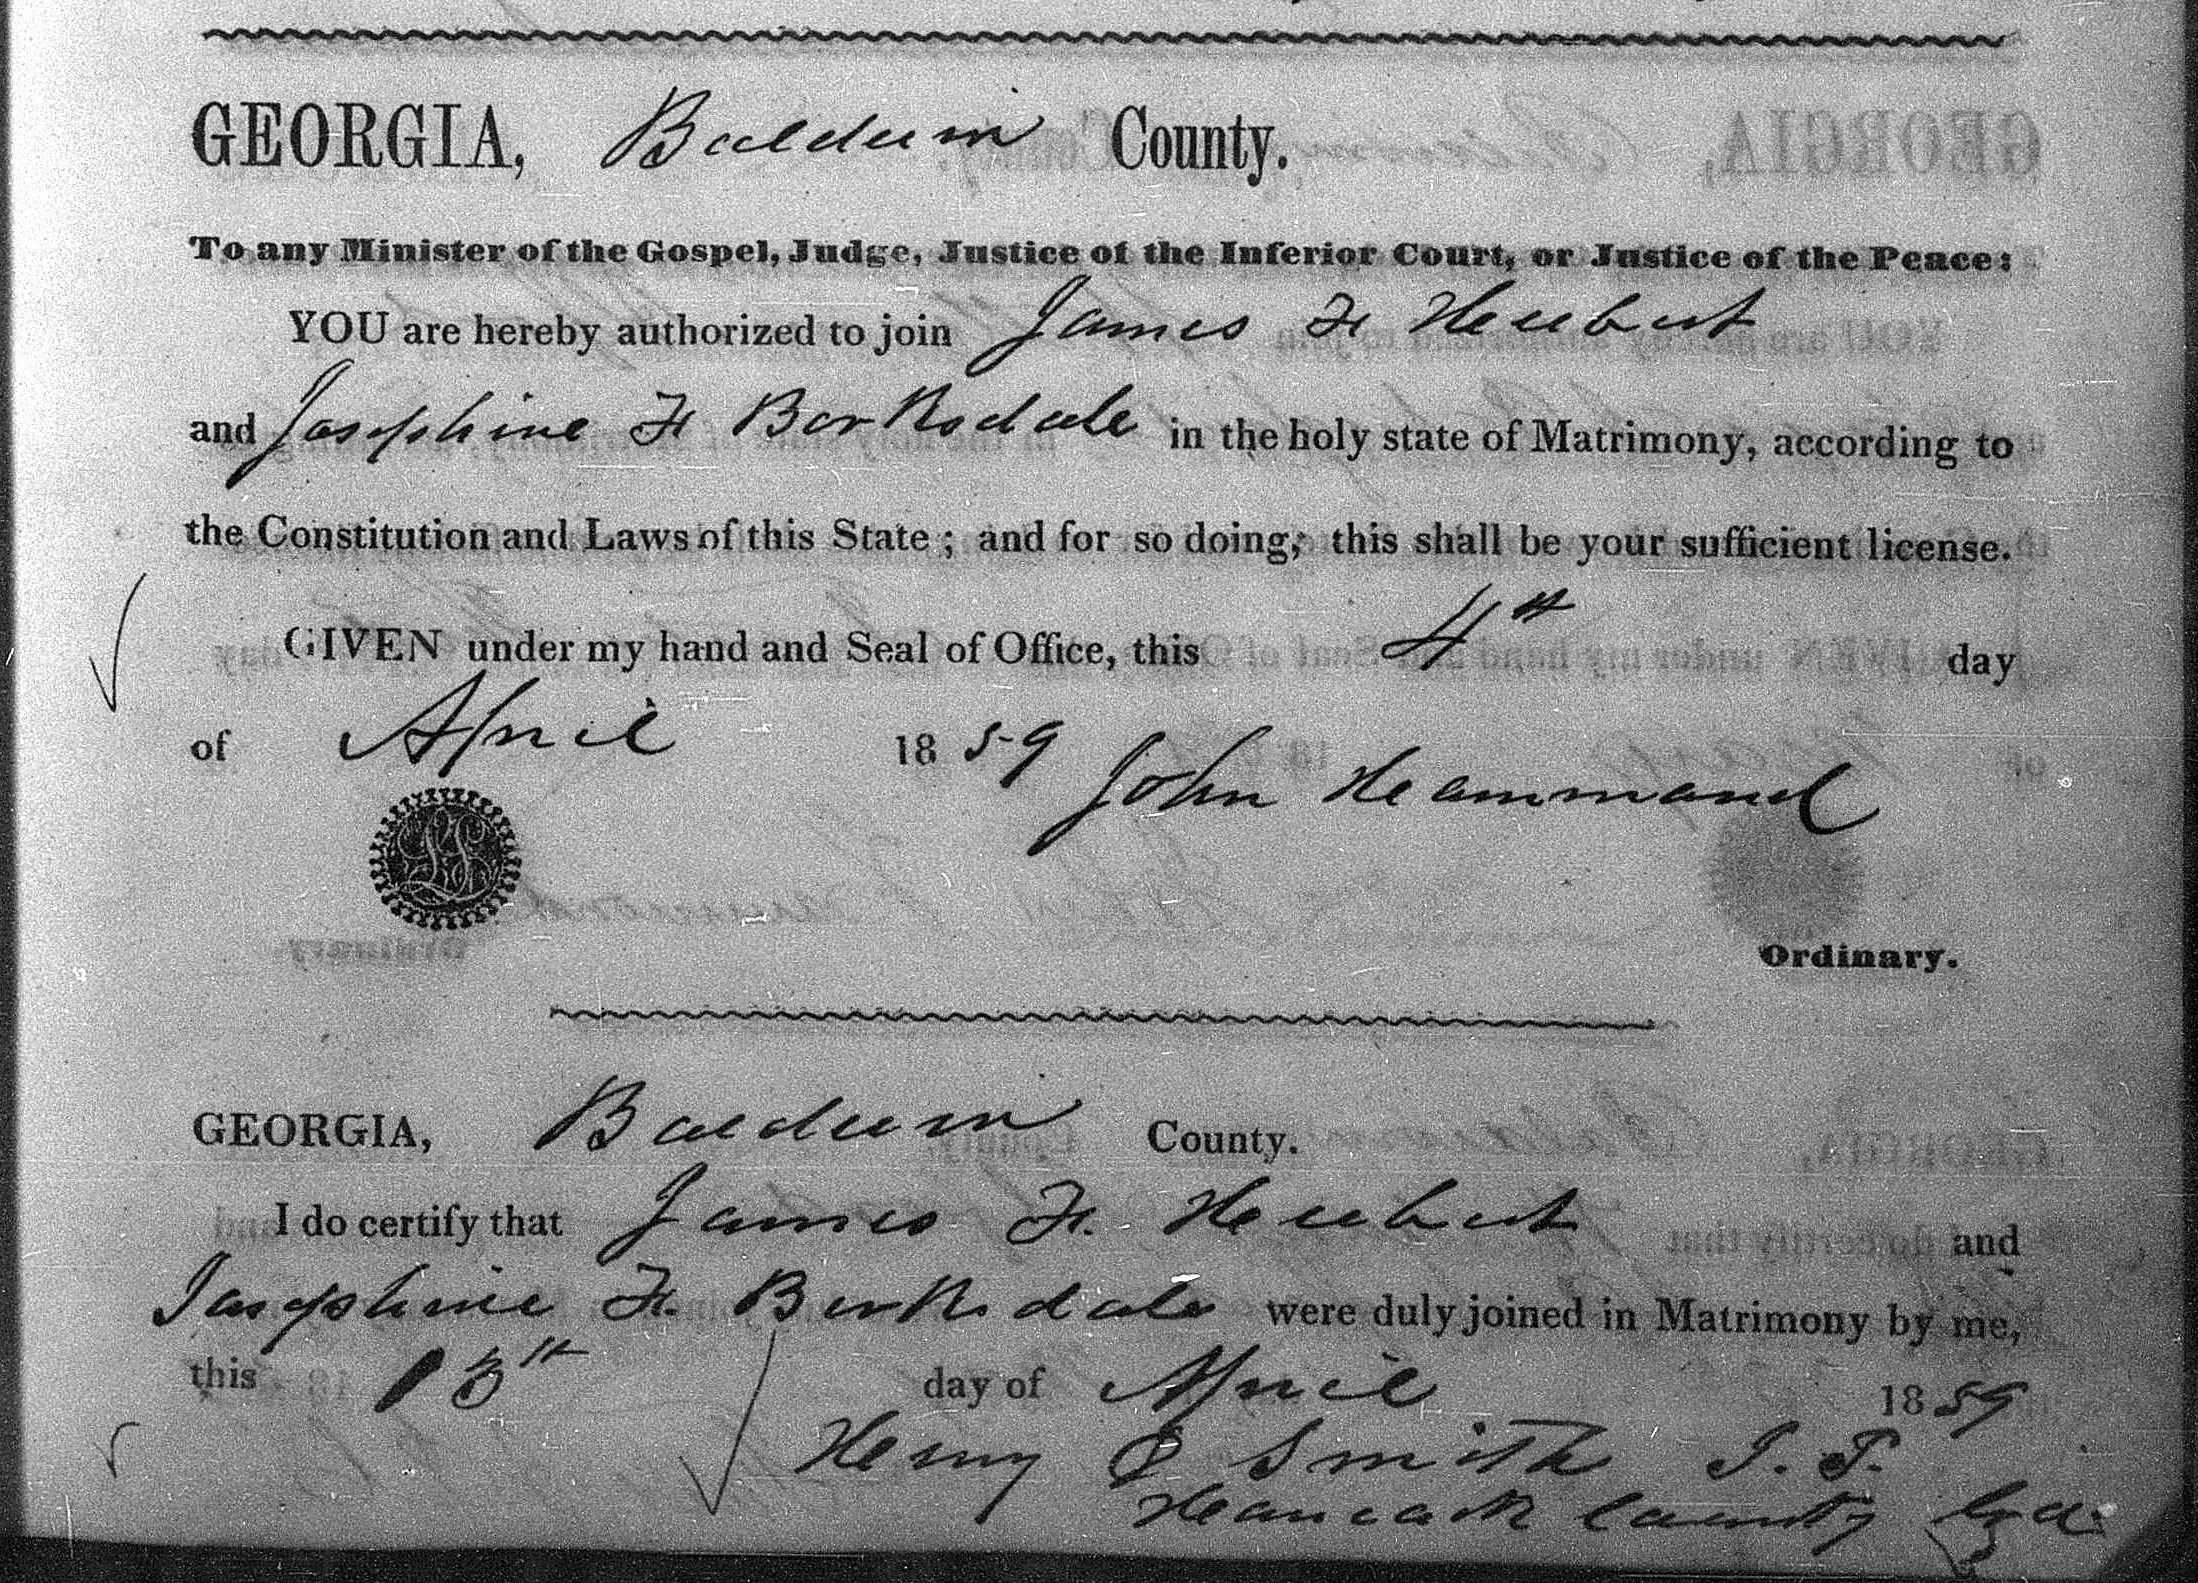 GEORGIA, Baldwin County.
To any Minister of the Gospel, Judge, Justice of the Inferior Court, or Justice of the Peace:
YOU are hereby authorized to join James F Huebert
and Josephine F Barksdale in the holy state of Matrimony, according to
the Constitution and Laws of this State; and for so doing, this shall be your sufficient license.
GIVEN under my hand and Seal of Office, this 4th day
of April 1859 John Hammond
LS
Ordinary.
GEORGIA, Baldwin County.
I do certify that James F. Huebert and
Josephine F. Barksdale were duly joined in Matrimony by me,
this 13th day of April 1859
Henry Smith J. P.
Hancock County Ga